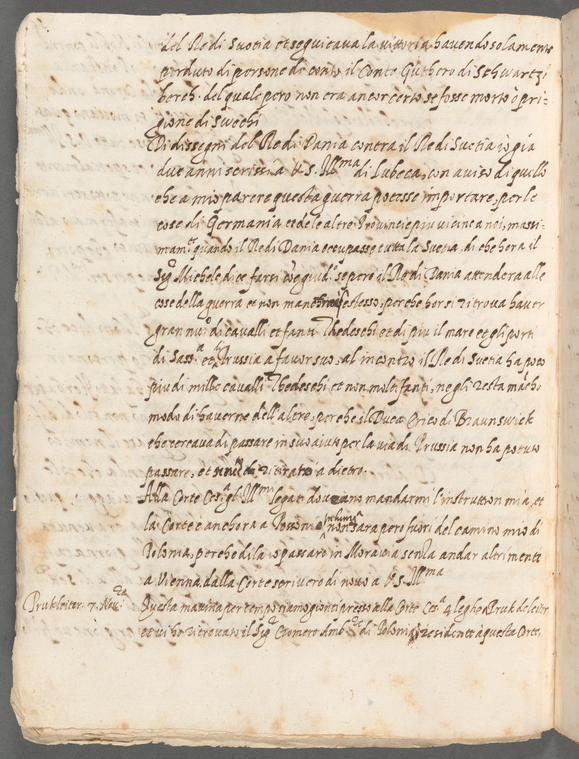 del Re di Suetia et seguitava la vittoria havendo solamente
perduto di persone di conto il Conte Guthero di Schwartzi
berch. del quale pero non era ancor certo se fosse morto ò pri-
gione di Suechi
Di dissegni del Re di Dania contra il Re di Suetia io già
due anni scrissi à V. S. Ill.ma di Lubeca, con aviso di quello
che a mio parere questa guerra potesse importare, per le
cose di Germania et de le altre Provincie piu vicine a noi, massi-
mam.te quando il Re di Dania occupasse tutta la Suetia. di che hera il
Sig.r Michele
cose della guerra et non manchi a se stesso, perche horsi ritrova haver
gran nu.o di cavalli et fanti Thedeschi, et di piu il mare et gli porti
di Sass.a et di Prussia a favor suo, al incontro il Re di Suetia ha poco
piu di mille cavalli Thedeschi et non molti fanti, ne gli resta
modo di haverne dell'altre, perche il Duca Erico di Braunswick
che cercava di passare in suo aiuto per la via di Prussia non ha potuto
passare, et ritirato à dietro.
Alla Corte Ces.a gl'Ill.mi legati dovrano mandarmi l'instruttion mia, et
la Corte e anchora a Possonio non sara pero fuori del camino mio di
Polonia, perche di la io passarò in Moravia senza andar altrimente
a Vienna. dalla Corte scriverò di novo a V. S. Ill.ma
Prukleiter. 7. Nov. Questa matina per tempo siamo gionti presso alla Corte Ces.a 4 leghe a Pruk de leiter
et vi ho ritrovato il Sig.r Cromero Amb.re di Polonia residente à questa Corte,